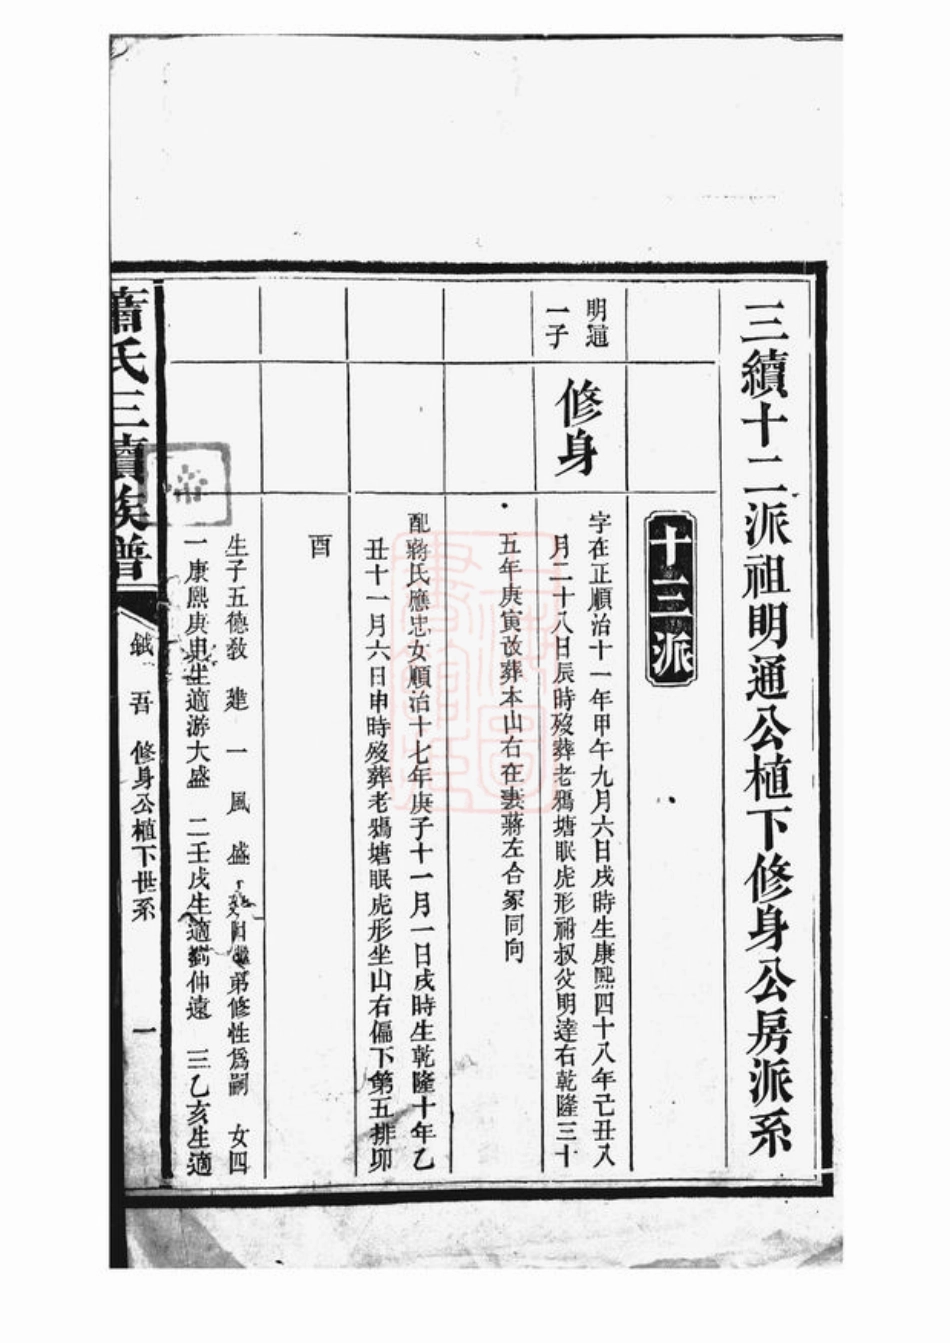 三續十二派祖明通公植下修身公房派系
十三派
明通
一子
修身
字在正順治十一年甲午九月六日戌時生康熙四十八年己丑八
月二十八日辰時歿葬老鴉塘眠虎形祔叔父明達右乾隆三十
五年庚寅改葬本山右在妻蔣左合冢同向
配蔣氏應忠女順治十七年庚子十一月一日戌時生乾隆十年乙
丑十一月六日申時歿葬老鴉塘眠虎形坐山右偏下第五排卯
酉
生子五德敎 建 一 風 盛 弟修性爲嗣 女四
一康熙庚申生適游大盛 二壬戌生適劉仲遠 三乙亥生適
蕭氏三續族譜
鉞吾 修身公植下世系
一